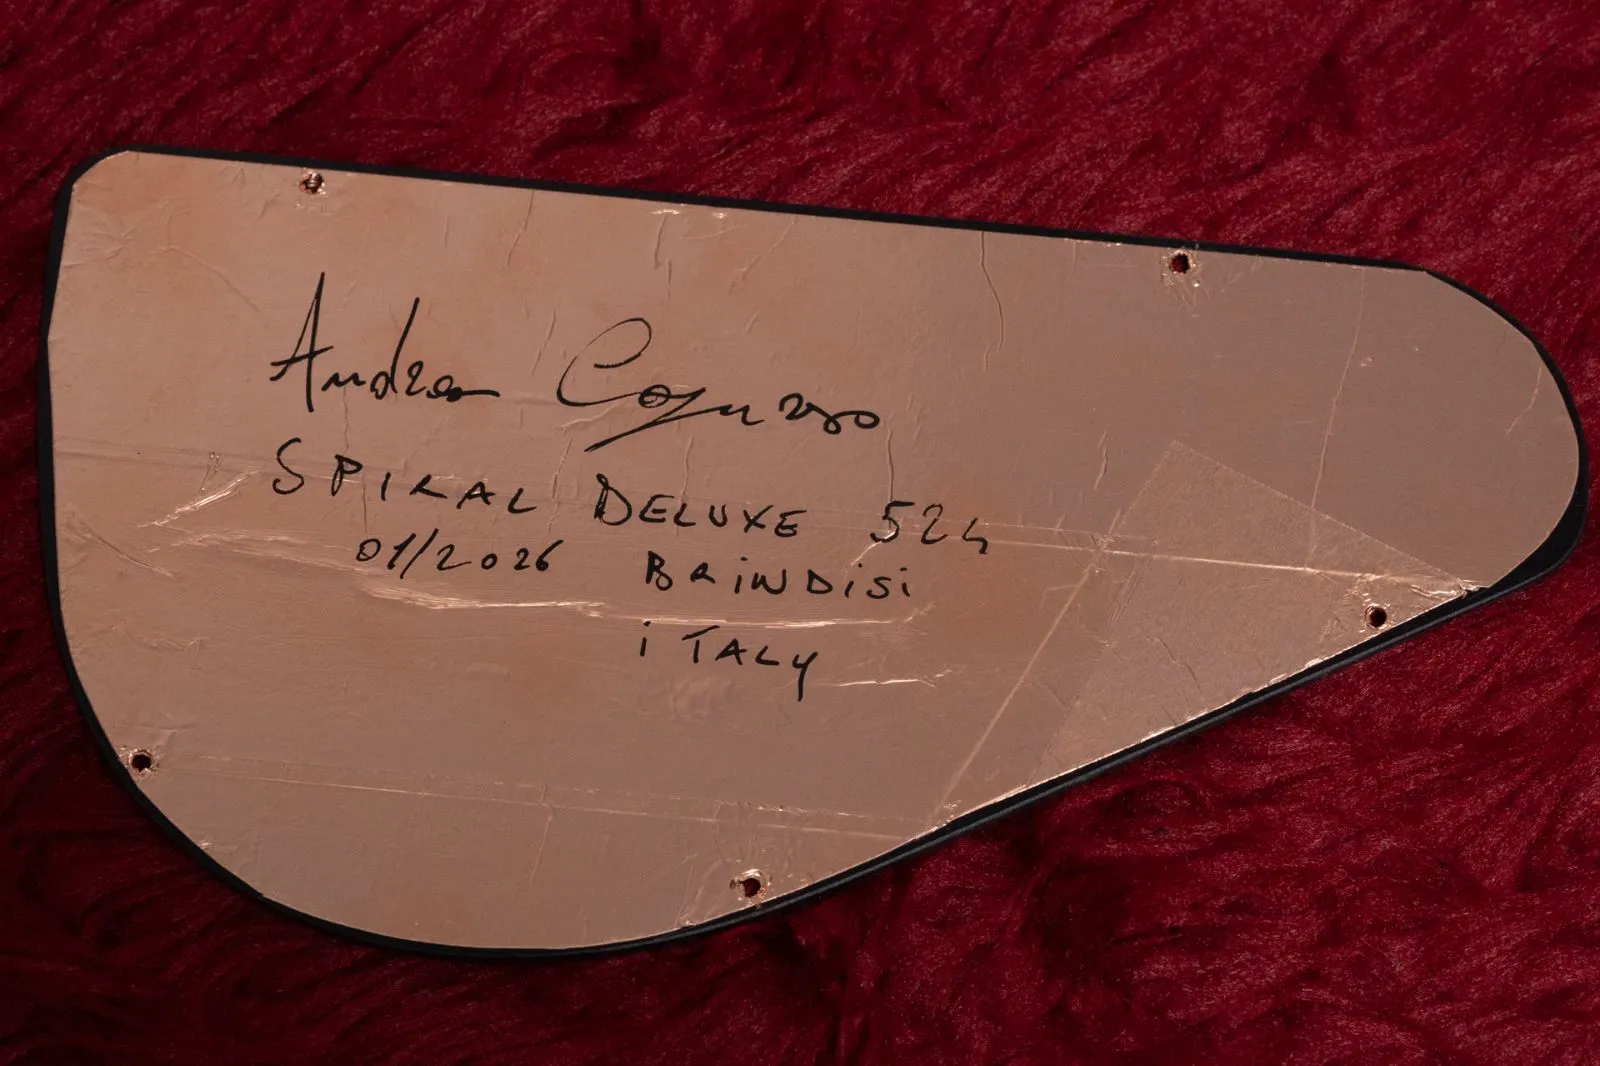 Andrea
SPIRAL DELUXE 524
01/2026 BRiNDiSi
iTALY